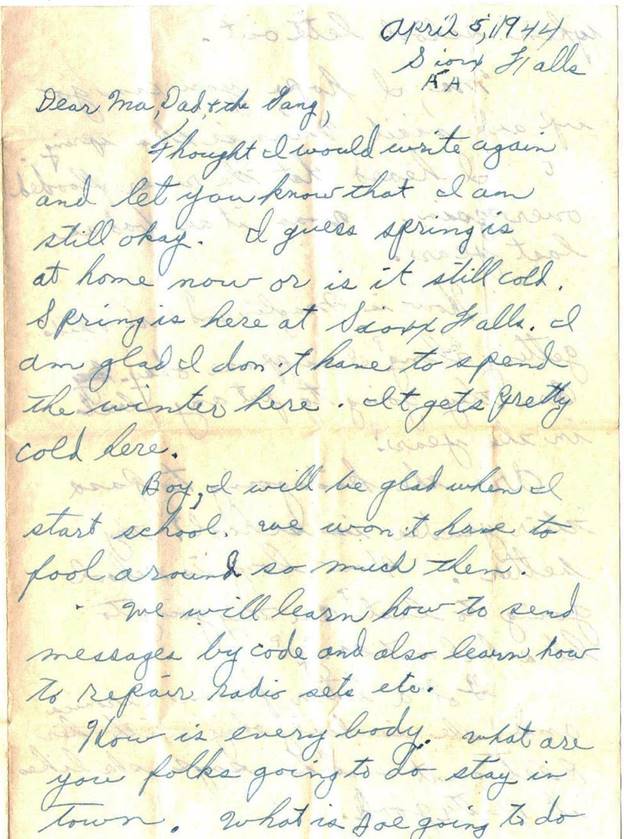 April 5, 1944
Sioux Falls
Dear Ma, Dad, & the Gang,
Thought I would write again
and let you know that I am
still okay. I guess spring is
at home now or is it still cold.
Spring is here at Sioux Falls. I
am glad I don't have to spend
the winter here. It gets pretty
cold here.
Boy, I will be glad when I
start school. We won't have to
fool around so much then.
We will learn how to send
messages by code and also learn how
to repair radio sets etc.
How is every body. What are
you folks going to do stay in
town. What is Joe going to do